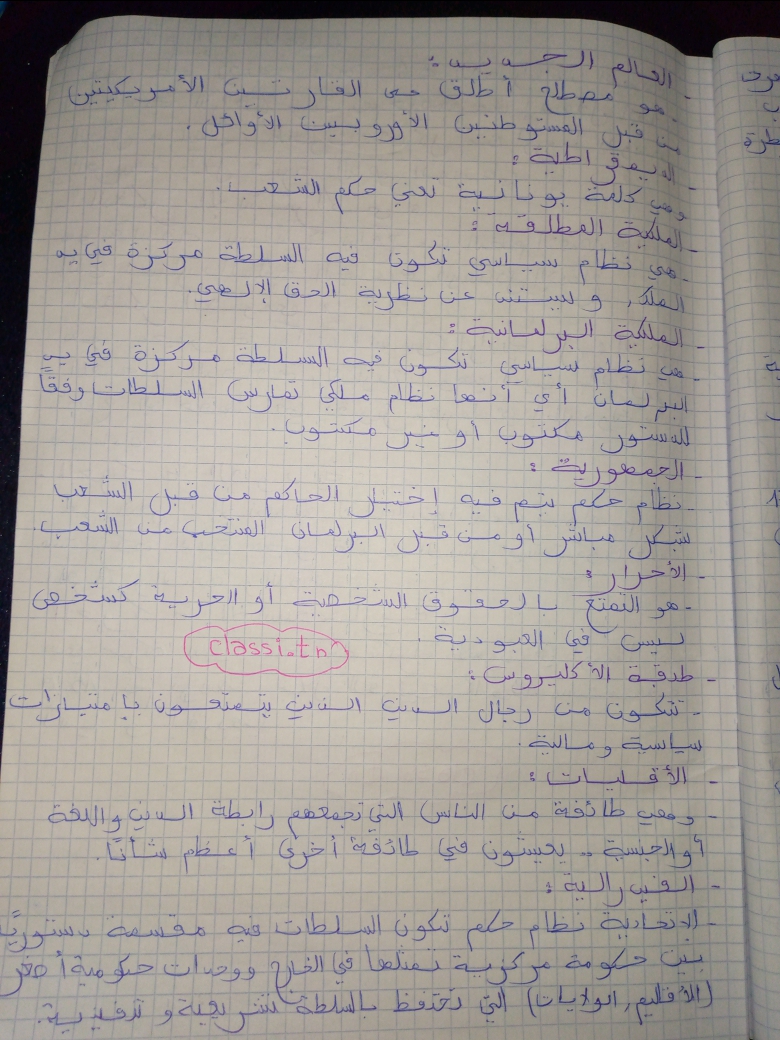 - العالم الجديد :
- هو مصطلح أطلق على القارتين الأمريكيتين
من قبل المستوطنين الأوروبيين الأوائل.
- الديمقراطية :
وهي كلمة يونانية تعني حكم الشعب.
- الملكية المطلقة :
- هي نظام سياسي تكون فيه السلطة مركزة في يد
الملك, ويستند عن نظرية الحق الإلهي.
- الملكية البرلمانية :
- هي نظام سياسي تكون فيه السلطة مركزة في يد
البرلمان أي أنها نظام ملكي تمارس السلطات وفقاً
لدستور مكتوب أو غير مكتوب.
- الجمهورية :
- نظام حكم يتم فيه إختيار الحاكم من قبل الشعب
بشكل مباشر أو من قبل البرلمان المنتخب من الشعب.
- الأحرار :
- هو التمتع بالحقوق الشخصية أو الحرية كشخص
ليس في العبودية.
classi.tn
- طبقة الأكليروس :
- تتكون من رجال الدين الذين يتمتعون بامتيازات
سياسية ومالية.
- الأقليات :
- وهي طائفة من الناس التي تجمعهم رابطة الدين واللغة
أو الجنسية .. يعيشون في طائفة أخرى أعظم شأنًا.
- الفيدرالية :
- الاتحادية نظام حكم تكون السلطات فيه مقسمة دستوريًا
بين حكومة مركزية تمثلها في الخارج ووحدات حكومية أصغر
(الأقليم, الولايات) التي تحتفظ بالسلطة تشريعية و تنفيذية.